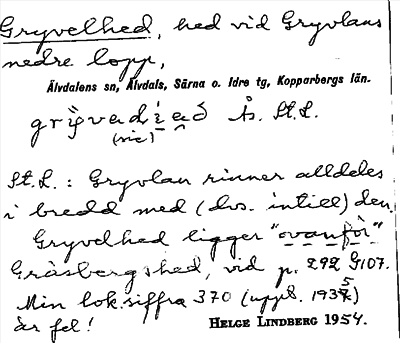 Gryvelhed, hed vid Gryvlans
nedre lopp,
Älvdalens sn, Älvdals, Särna o. Idre tg, Kopparbergs län.
Å. St.L.
(sic)
St.L.: Gryvlan rinner alldeles
i bredd med (dvs. intill) den.
Gryvelhed ligger "ovanför"
Gråsbergshed, vid p. 292 G107.
Min lok.siffra 370 (uppt. 1935)
är fel!
HELGE LINDBERG 1954.